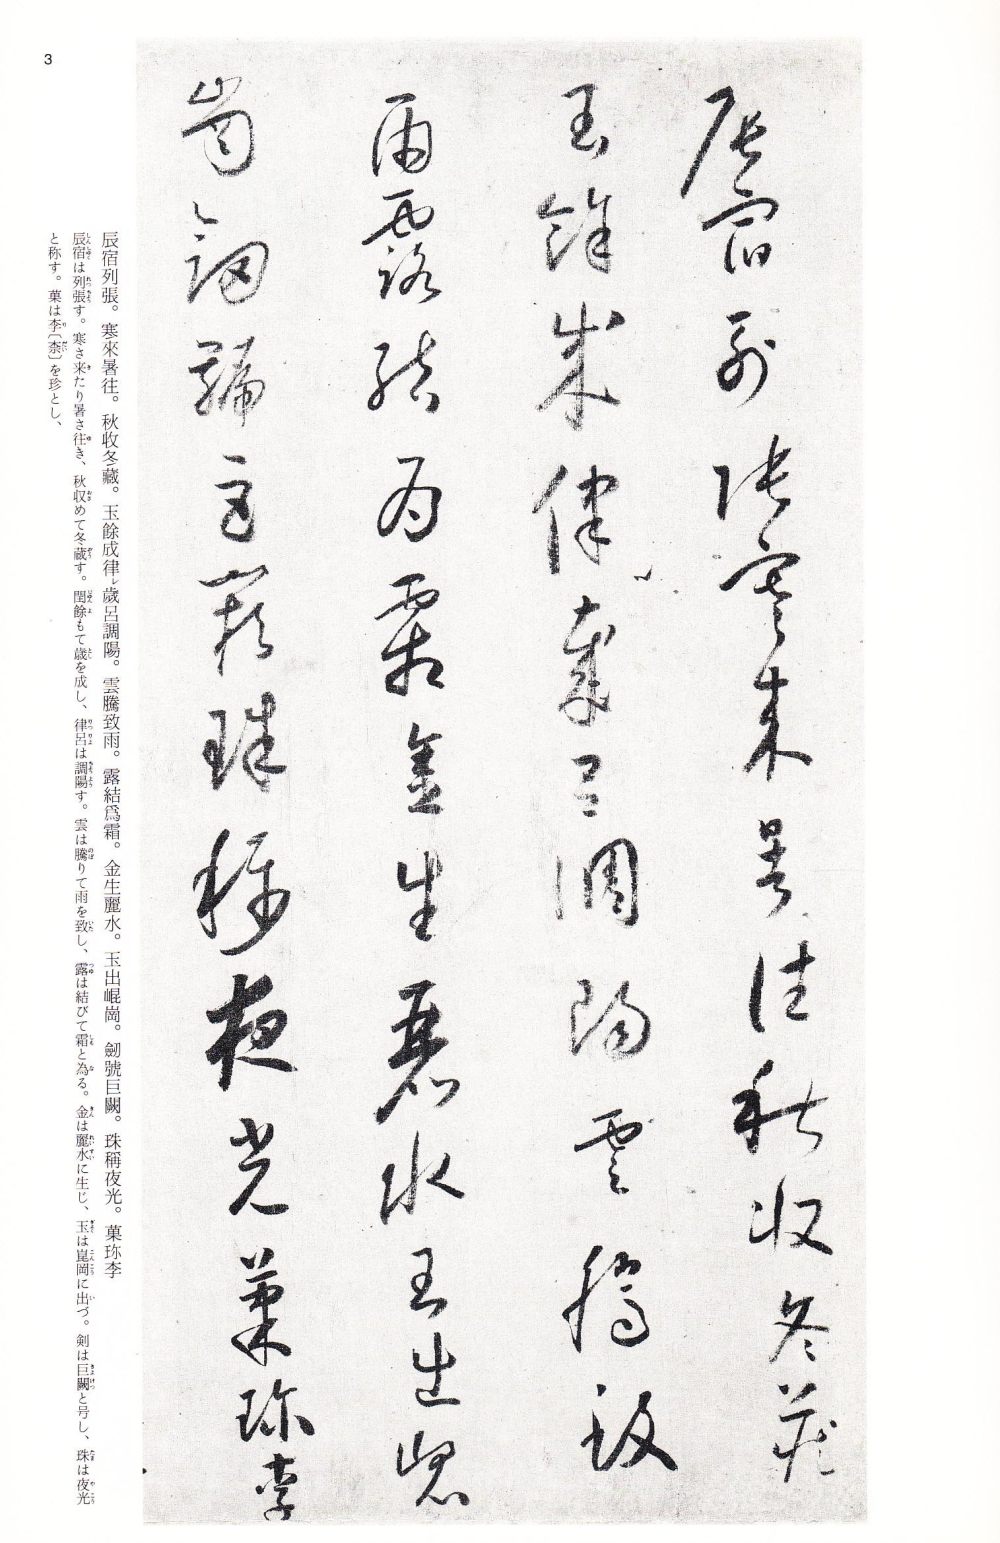 3
辰宿列張寒來暑往秋收冬藏
玉餘成律歲呂調陽雲騰致
雨露結爲霜金生麗水玉出崐
崗劒號巨闕珠稱夜光菓珎李
辰宿列張。寒來暑往。秋收冬藏。玉餘成律レ歲呂調陽。雲騰致雨。露結爲霜。金生麗水。玉出崐崗。劒號巨闕。珠稱夜光。菓珎李
辰宿は列張す。寒さ来たり暑さ往き、秋収めて冬蔵す。閏餘もて歳を成し、律呂は調陽す。雲は騰りて雨を致し、露は結びて霜と為る。金は麗水に生じ、玉は崑岡に出づ。剣は巨闕と号し、珠は夜光
と称す。菓は李〔柰〕を珍とし、